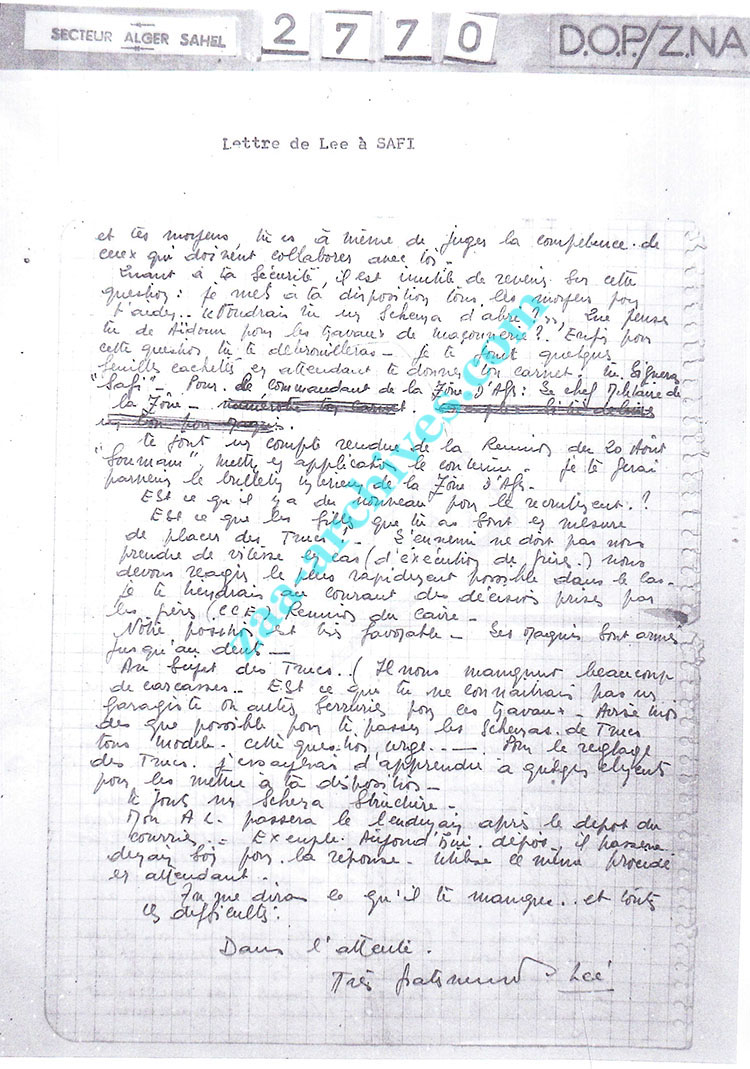 SECTEUR ALGER SAHEL
2770
D.O.P./Z.NA
Lettre de Lee à SAFI
et tes moyens, tu es à même de juger la compétence de
ceux qui doivent collaborer avec toi.
Quant à ta Sécurité, il est inutile de revenir sur cette
question : je mets à ta disposition tous les moyens pour
t'aider.. "Voudrais tu un Schema d'abri ?", Que penses
tu de Aidoun pour les travaux de maçonnerie ?. Enfin pour
cette question tu te débrouilleras - Je te joint quelques
feuilles cachetés en attendant te donner ton carnet. Tu Signeras
"Safi" - Pour le commandant de la Zône d'Alger : Le chef Militaire de
la Zône -
te joint un compte rendue de la Reunion du 20 Août
"Soumam", mettre en application le contenu - Je te ferai
parvenir le bulletin intérieur de la Zône d'Alger.
Est ce qu'il y a du nouveau pour le recrutement. ?
Est ce que les filles que tu as sont en mesure
de placer des Trucs ? - L'ennemi ne doit pas nous
prendre de vitesse en cas (d'éxécution de frères.) nous
devons réagir le plus rapidement possible dans le cas.
Je te tiendrais au courant des décisions prises par
les frères (CCE) Reunion du Caire -
Notre position est très favorable - Les Maquis sont armés
jusqu'au dents -
Au Sujet des Trucs.. ( Il nous manquent beaucoup
de carcasses.. Est ce que tu ne connaitrais pas un
garagiste ou autres Serruriers pour ces travaux - Avise moi
des que possible pour te passer les Schemas de Trucs
tous modèle. Cette question urge.. - Pour le reglage
des Trucs. j'essayerai d'apprendre à quelques élements
pour les mettre à ta disposition -
te joint un Schema Structure -
Mon A L. passera le lendemain après le dépot du
courrier. = Exemple. Aujourd'hui dépos. il passera
demain Soir pour la réponse. Utilise ce même procédé
en attendant.
Tu me diras ce qu'il te manque.. et toutes
les difficultés.
Dans l'attente.
Très fraternel - Leé
zaa-archives.com